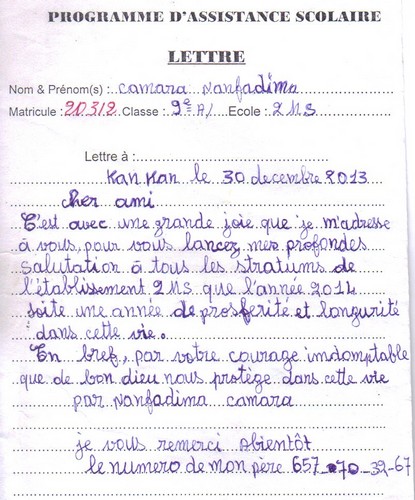 PROGRAMME D'ASSISTANCE SCOLAIRE
LETTRE
Nom & Prénom(s) : camara Nanfadima
Matricule : 20312 Classe : 9e A/ Ecole : 2HS
Lettre à :
Kan Kan le 30 decembre 2013
cher ami
C'est avec une grande joie que je m'adresse
à vous, pour vous lancez mes profondes
salutation à tous les stratums de
l'établissement 2HS que l'année 2014
soite une année de prosferité et longurité
dans cette vie.
En bref, par votre courage indomptable
que de bon dieu nous protège dans cette vie
par Nanfadima camara
je vous remerci Abientôt
le numero de mon père 657-70-39-67